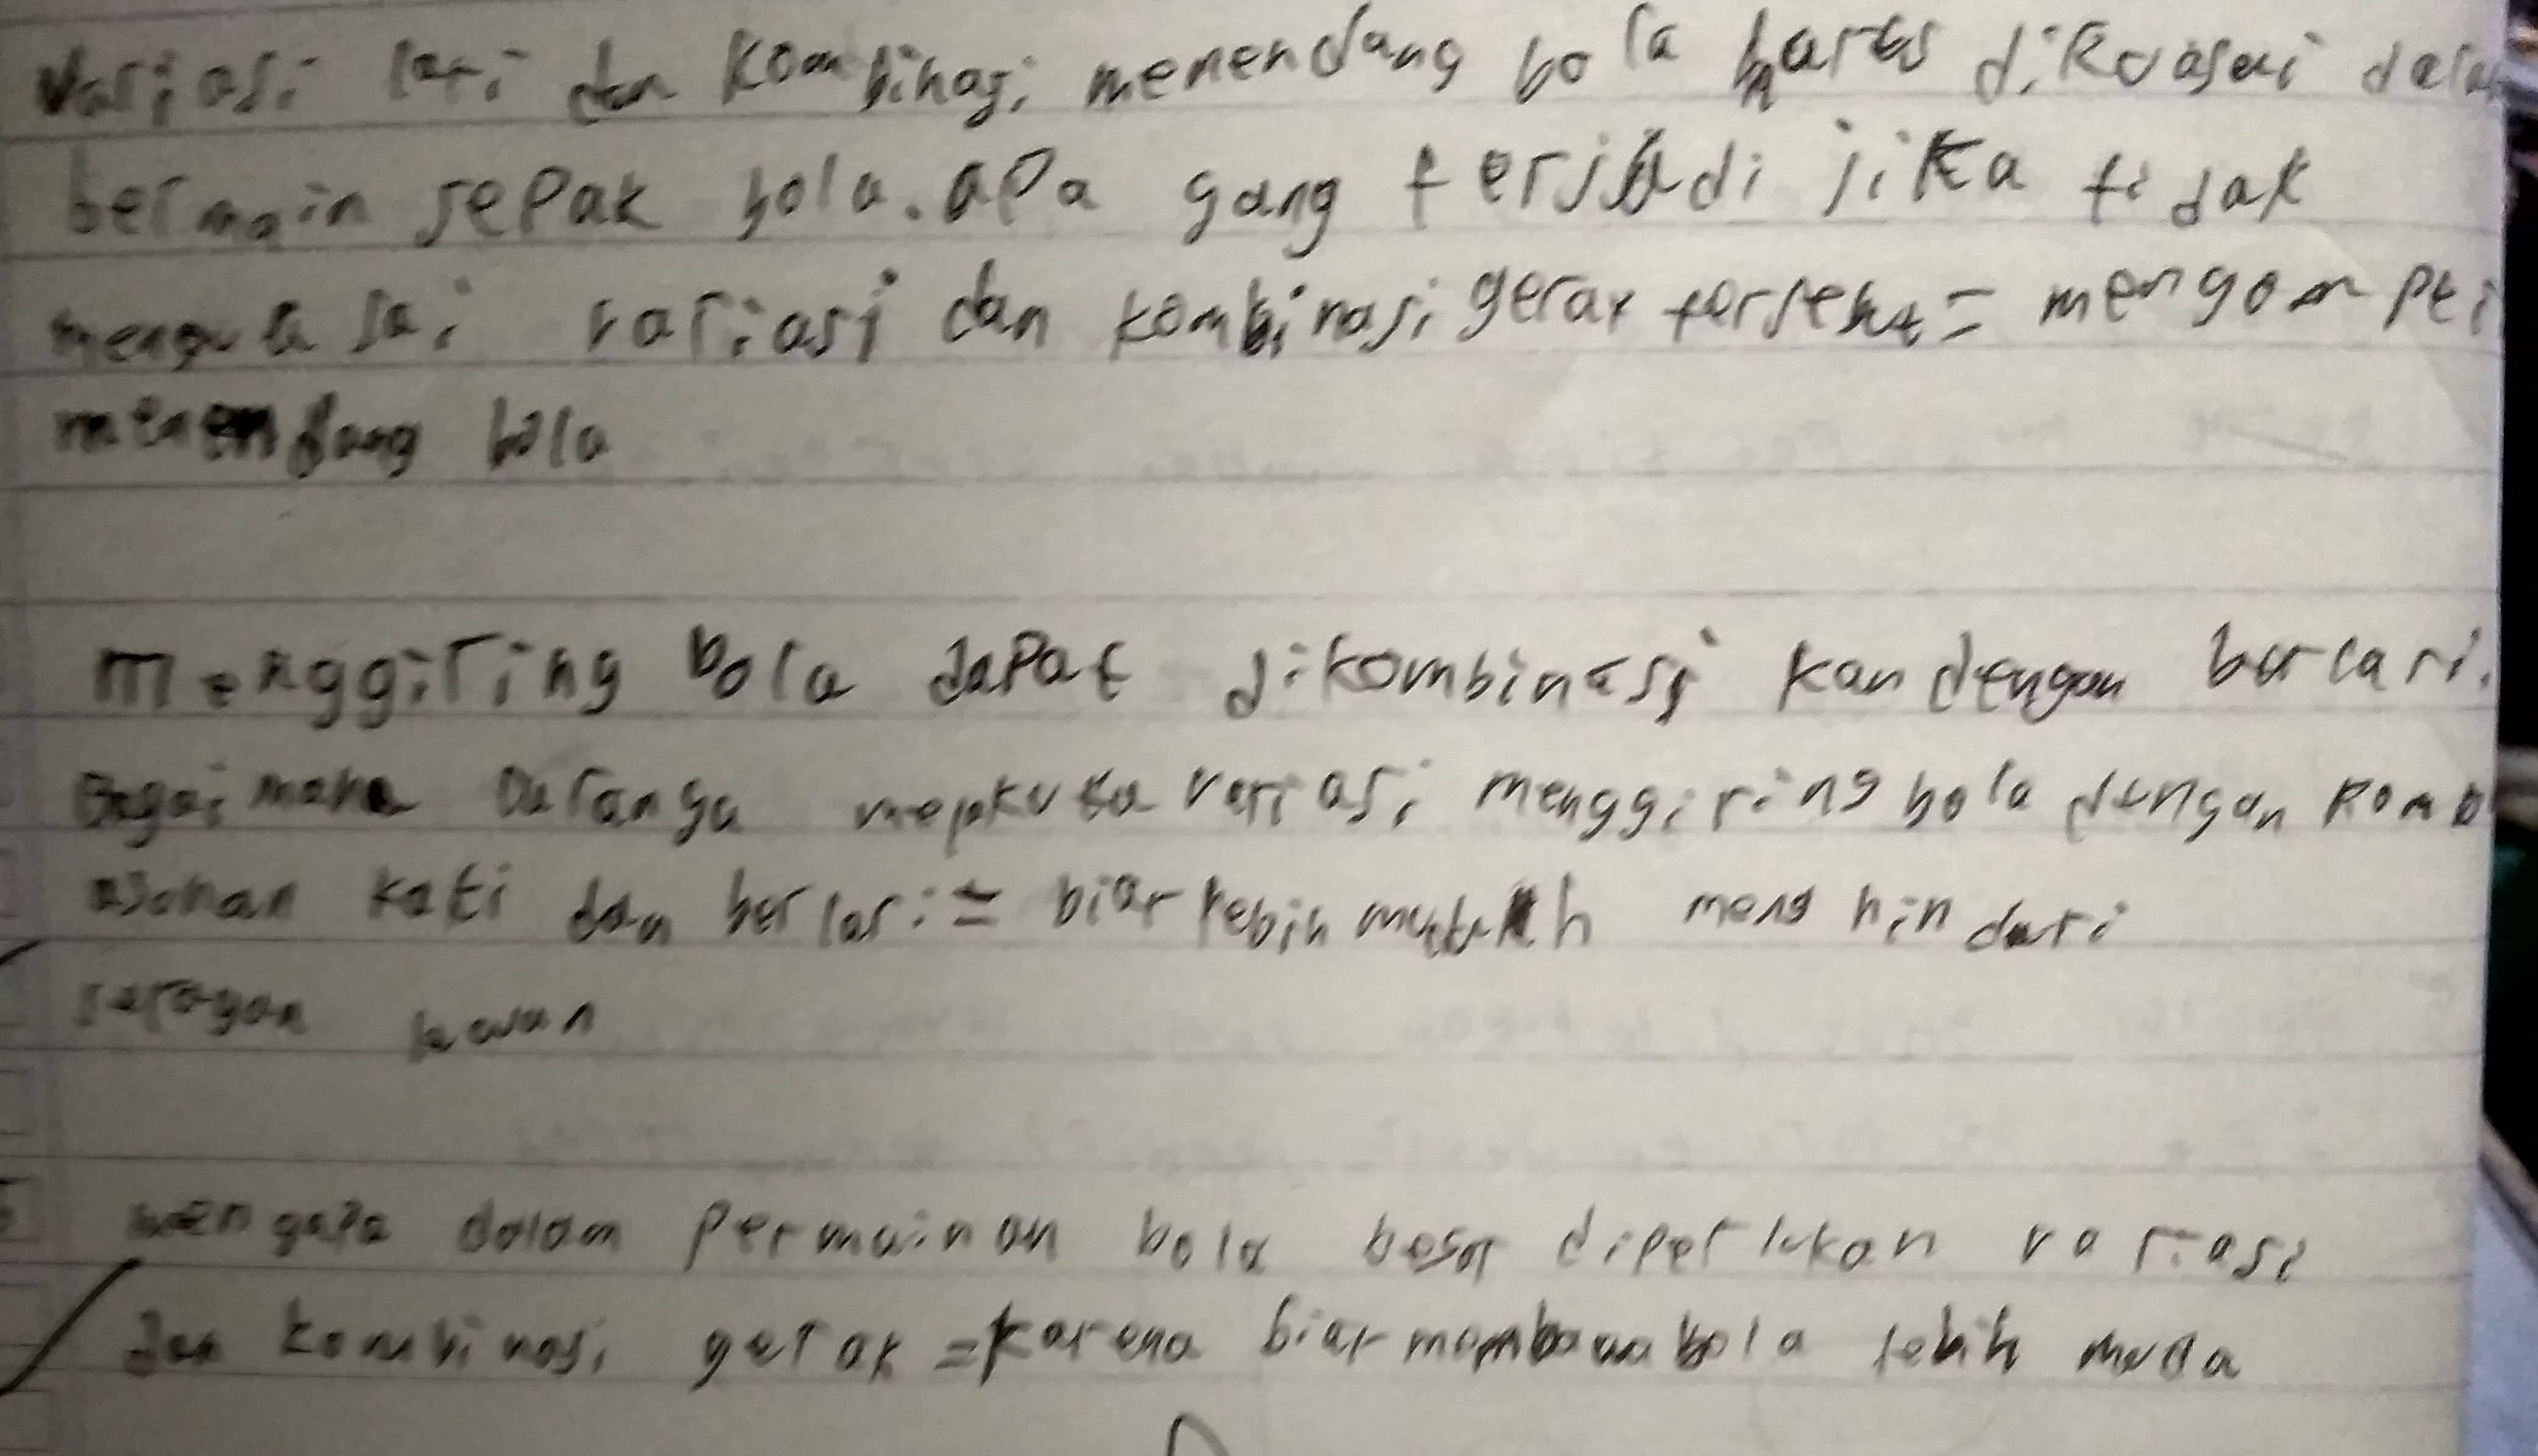 Variasi lari dan kombinasi menendang bola harus dikuasai dala
bermain sepak bola. apa yang terjadi jika tidak
menguasai variasi dan kombinasi gerak tersebut =
menendang bola
Menggiring bola dapat dikombinasi kan dengan berlari.
Bagaimana caranya variasi menggiring bola dengan komb
kati dan berlari = biar lebih mudah meng hindari
serangan lawan
mengapa dalam permainan bola besar diperlukan variasi
dan kombinasi gerak = karena biar membawa bola lebih muda